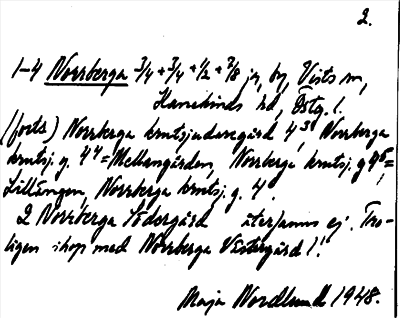 2.
1-4 Norrberga 3/4 + 3/4 + 1/2 + 2/8 jr, by, Vists sn,
Hanekinds hd, Östg. l.
(forts) Norrberga krutsjudaregård 4 3, Norrberga
krutsj. g. 4 4 = Mellangården, Norrberga krutsj. g 4 5 =
Lillängen, Norrberga krutsj. g. 4.
2 Norrberga Södergård återfanns ej. Tro-
ligen ihop med Norrberga Västergård 1.
Maja Nordlund 1948.